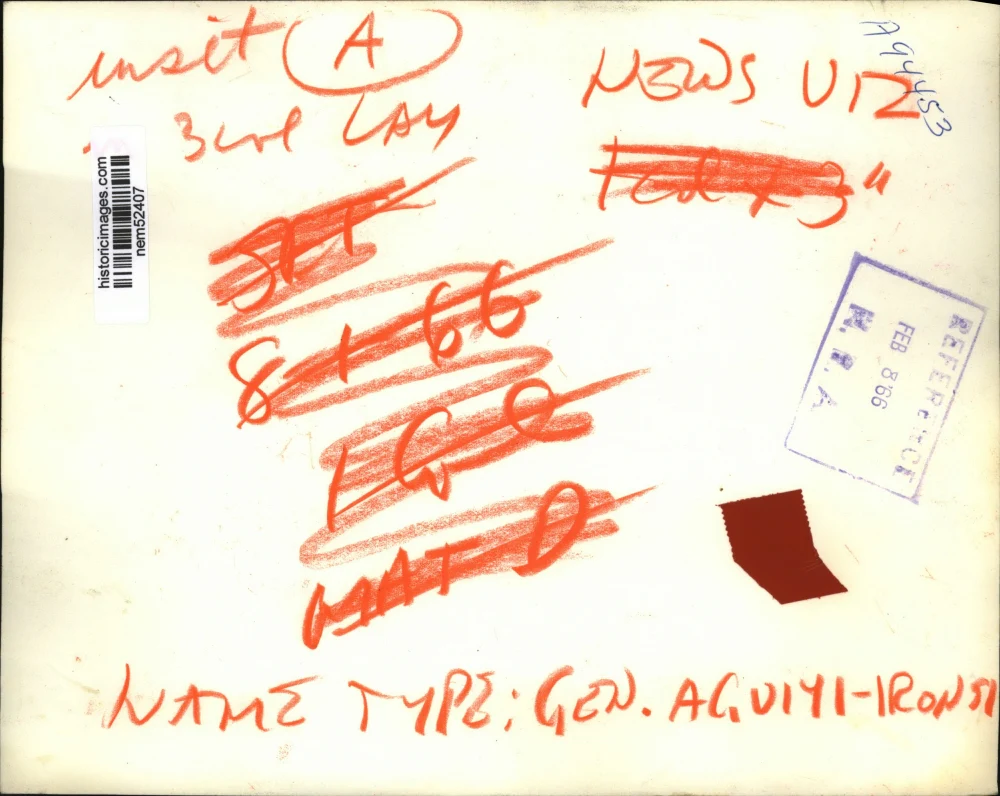 insit A
3 col LAY
NEWS VIZ
A94453
1 col x 3"
historicimages.com
nem52407
SAT
8 1 66
MAT D
REFERENCE
FEB 8 '66
N. E. A
NAME TYPE: GEN. AGUIYI-IRONSI